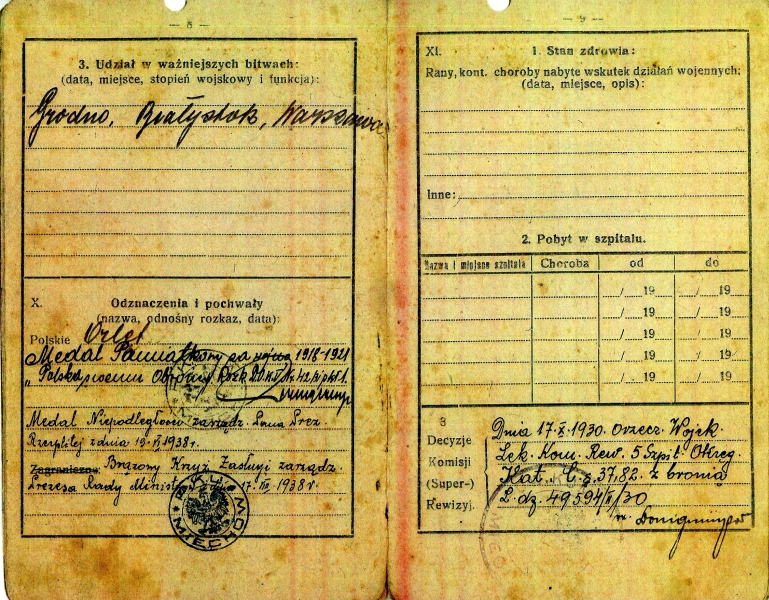 — 8 —
3. Udział w ważniejszych bitwach:
(data, miejsce, stopień wojskowy i funkcja):
Grodno, Białystok, Warszawa
X. Odznaczenia i pochwały
(nazwa, odnośny rozkaz, data):
Polskie Orlęt
Medal Pamiątkowy za wojnę 1918-1921
„Polska swemu Obrońcy
Medal Niepodległości zarządz. Pana Prez.
Rzeczplitej z dnia 19. 1938 r.
Zagraniczne: Brązowy Krzyż Zasługi zarządz.
Prezesa Rady Ministrów 17. 1938 r.
MIECHÓW
— 9 —
XI. 1. Stan zdrowia:
Rany, kont. choroby nabyte wskutek działań wojennych:
(data, miejsce, opis):
Inne:
2. Pobyt w szpitalu.
Nazwa i miejsce szpitala Choroba od do
/ 19 / 19
/ 19 / 19
/ 19 / 19
/ 19 / 19
/ 19 / 19
3
Decyzje
Komisji
(Super-)
Rewizyj.
Dnia 17.X.1930. Orzecz. Wojsk.
Lek. Kom. Rew. 5 Szpit. Okręg.
Kat. C § 37.82. z bronią
L. dz. 49594/ /30